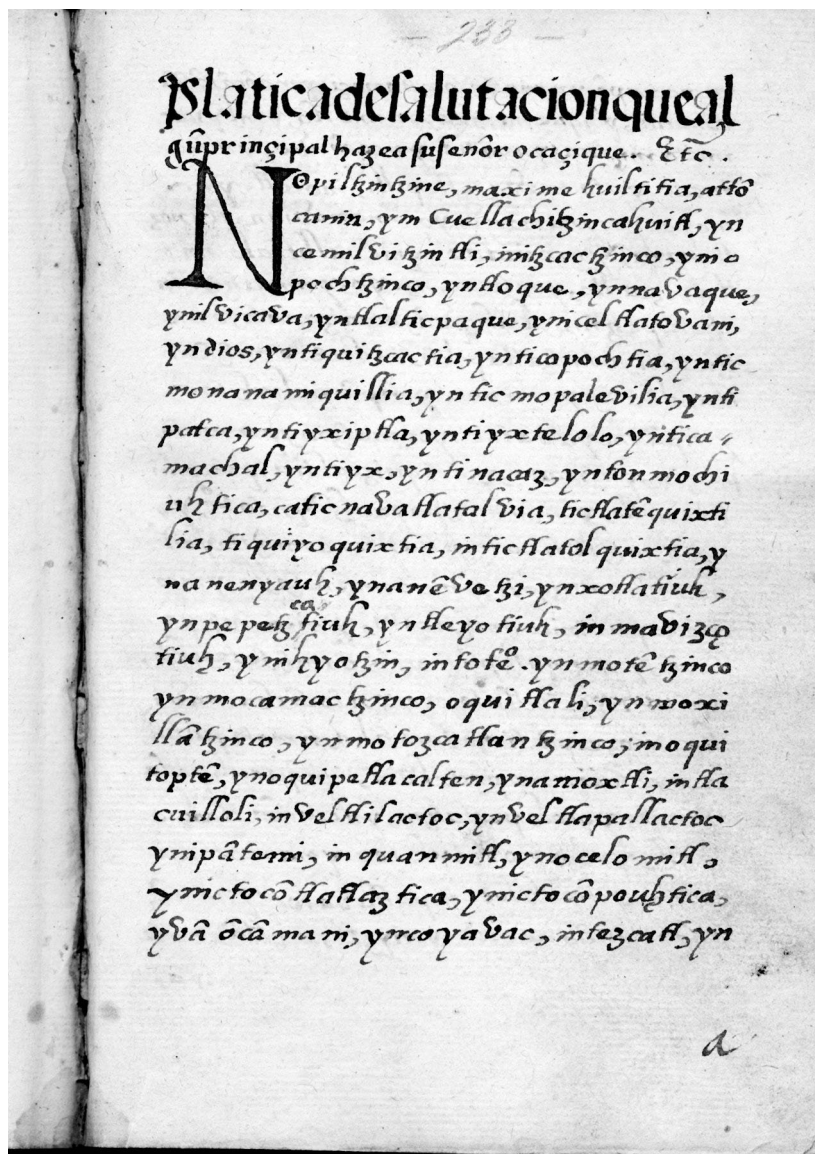 - 233 -
Platica de salutacion que al
gũ prinçipal haze a su señor o caçique. Etc̃.
Nopiltzintzine, maximehuiltitia, attõ
canin, ym Cuellachitzincahuitl, yn
cemilvitzintli, initzcactzinco, ynio
pochtzinco, yntloque, ynnavaque,
ynilvicava, yntlalticpaque, ynicel tlatovani,
yn dios, yntiquitzcactia, ynticopochtia, yntic
monanamiquillia, yn tic mopalevilia, ynti
patca, yntiyxiptla, yntiyxtelolo, yntica-
machal, yntiyx, yntinacaz, yntonmochi
uhtica, catic navatlatalvia, tictlatẽquixti
lia, tiquiyoquixtia, intictlatolquixtia, y
nanenyauh, ynanẽvetzi, ynxotlatiuh,
ynpepetzcatiuh, yntleyotiuh, inmavizço
tiuh, ynihyotzin, intotẽº. ynmotẽtzinco
ynmocamactzinco, oquitlali, ynmoxi
llãtzinco, ynmotozcatlantzinco, moqui
toptẽ, ynoquipetlacalten, ynamoxtli, intla
cuilloli, inveltlilactoc, ynveltlapallactoc
ynipãtemi, in quanmitl, ynocelomitl,
ynictocõtlatlaztica, ynictocõpouhtica,
yvã õcã mani, yncoyavac, intezcatl, yn
a